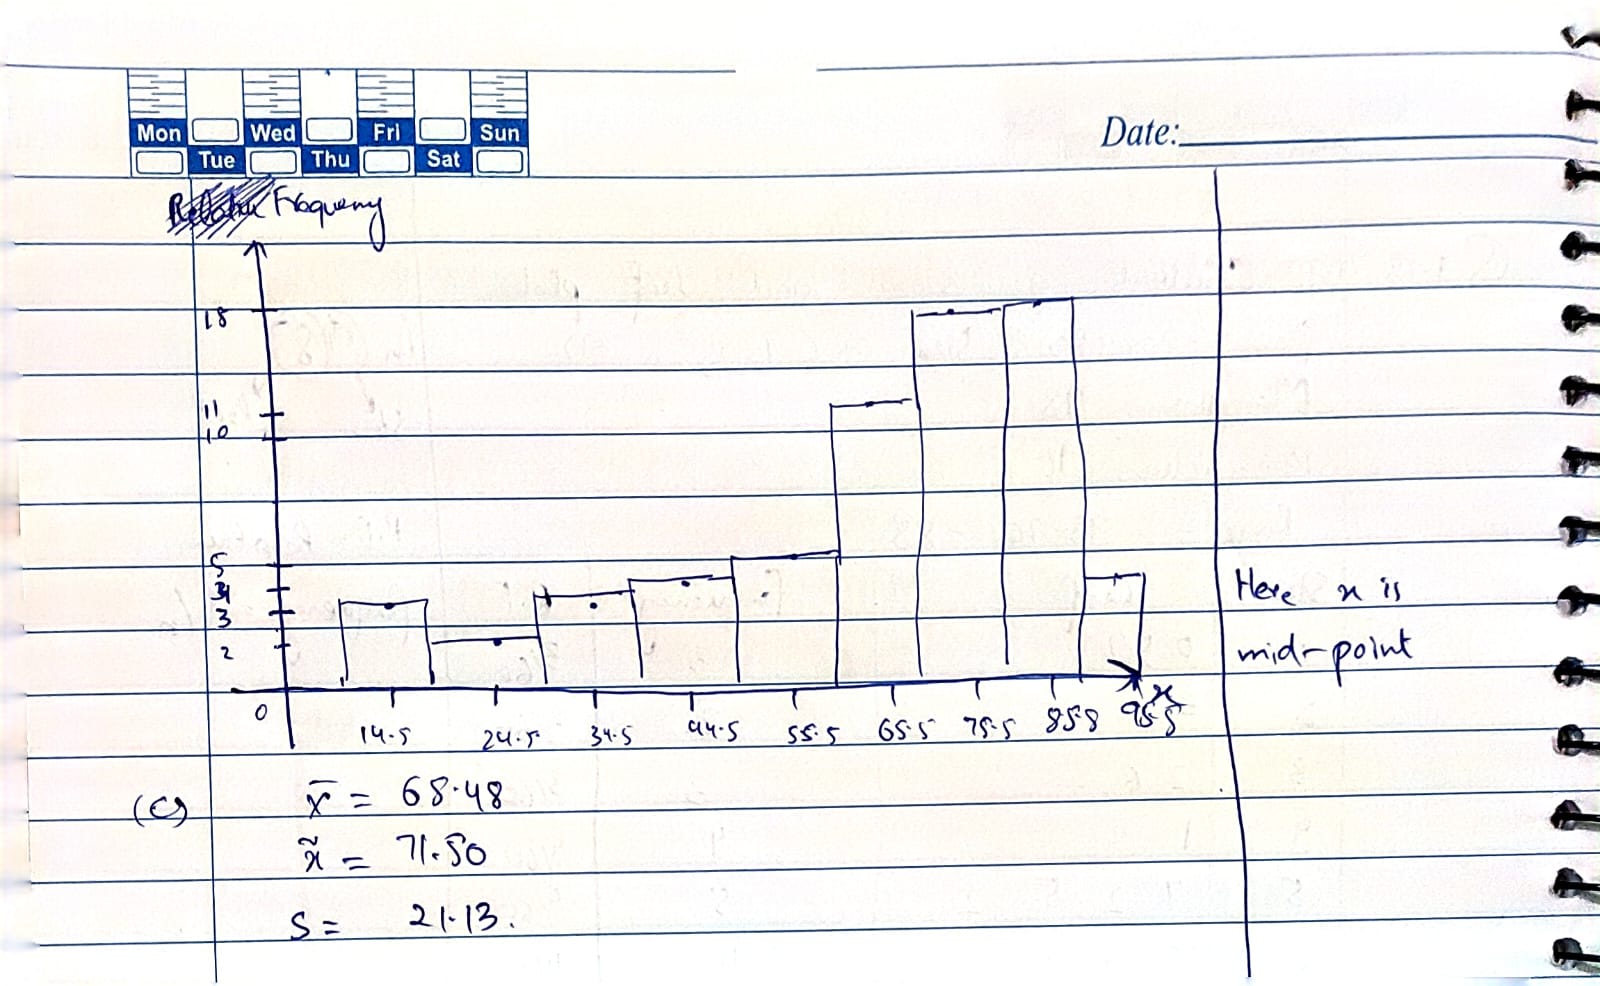 Mon Wed Fri Sun
Tue Thu Sat
Date:
Frequency
18
11
10
5
4
3
2
0
14.5 24.5 34.5 44.5 55.5 65.5 75.5 85.8 95.5
x
Here x is
mid-point
(c) x̄ = 68.48
x̃ = 71.50
S = 21.13.